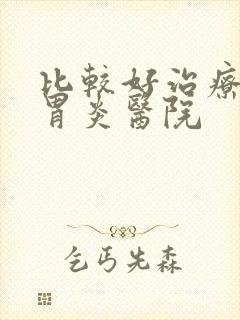 比較好治療
胃炎醫院
乞丐先森